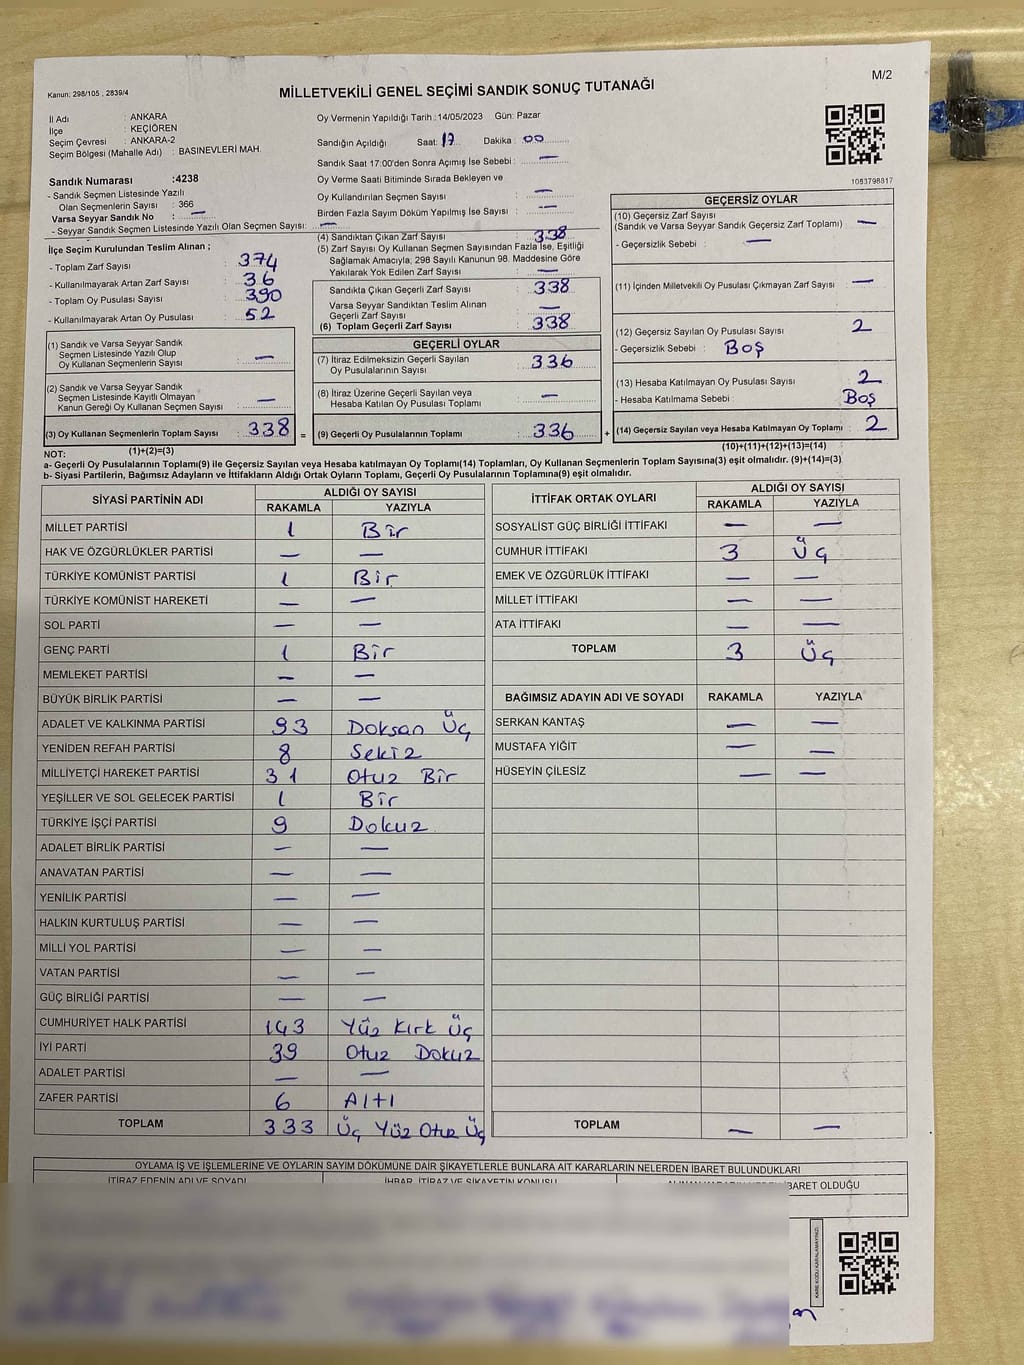 Kanun: 298/105 , 2839/4
MİLLETVEKİLİ GENEL SEÇİMİ SANDIK SONUÇ TUTANAĞI
M/2
İl Adı : ANKARA
İlçe : KEÇİÖREN
Seçim Çevresi : ANKARA-2
Seçim Bölgesi (Mahalle Adı) : BASINEVLERİ MAH.
Sandık Numarası :4238
- Sandık Seçmen Listesinde Yazılı
Olan Seçmenlerin Sayısı : 366
Varsa Seyyar Sandık No : —
- Seyyar Sandık Seçmen Listesinde Yazılı Olan Seçmen Sayısı: —
Oy Vermenin Yapıldığı Tarih : 14/05/2023 Gün: Pazar
Sandığın Açıldığı Saat: 17 Dakika : 00
Sandık Saat 17:00'den Sonra Açımış İse Sebebi : —
Oy Verme Saati Bitiminde Sırada Bekleyen ve
Oy Kullandırılan Seçmen Sayısı : —
Birden Fazla Sayım Döküm Yapılmış İse Sayısı : —
1083798817
İlçe Seçim Kurulundan Teslim Alınan ;
- Toplam Zarf Sayısı : 374
- Kullanılmayarak Artan Zarf Sayısı : 36
- Toplam Oy Pusulası Sayısı : 390
- Kullanılmayarak Artan Oy Pusulası : 52
(1) Sandık ve Varsa Seyyar Sandık
Seçmen Listesinde Yazılı Olup
Oy Kullanan Seçmenlerin Sayısı : —
(2) Sandık ve Varsa Seyyar Sandık
Seçmen Listesinde Kayıtlı Olmayan
Kanun Gereği Oy Kullanan Seçmen Sayısı : —
(3) Oy Kullanan Seçmenlerin Toplam Sayısı : 338
(1)+(2)=(3)
(4) Sandıktan Çıkan Zarf Sayısı : 338
(5) Zarf Sayısı Oy Kullanan Seçmen Sayısından Fazla İse, Eşitliği
Sağlamak Amacıyla; 298 Sayılı Kanunun 98. Maddesine Göre
Yakılarak Yok Edilen Zarf Sayısı : —
Sandıkta Çıkan Geçerli Zarf Sayısı : 338
Varsa Seyyar Sandıktan Teslim Alınan
Geçerli Zarf Sayısı : —
(6) Toplam Geçerli Zarf Sayısı : 338
GEÇERLİ OYLAR
(7) İtiraz Edilmeksizin Geçerli Sayılan
Oy Pusulalarının Sayısı : 336
(8) İtiraz Üzerine Geçerli Sayılan veya
Hesaba Katılan Oy Pusulası Toplamı : —
= (9) Geçerli Oy Pusulalarının Toplamı : 336 +
GEÇERSİZ OYLAR
(10) Geçersiz Zarf Sayısı
(Sandık ve Varsa Seyyar Sandık Geçersiz Zarf Toplamı) —
- Geçersizlik Sebebi : —
(11) İçinden Milletvekili Oy Pusulası Çıkmayan Zarf Sayısı —
(12) Geçersiz Sayılan Oy Pusulası Sayısı 2
- Geçersizlik Sebebi : Boş
(13) Hesaba Katılmayan Oy Pusulası Sayısı 2
- Hesaba Katılmama Sebebi : Boş
(14) Geçersiz Sayılan veya Hesaba Katılmayan Oy Toplamı : 2
(10)+(11)+(12)+(13)=(14)
NOT:
a- Geçerli Oy Pusulalarının Toplamı(9) ile Geçersiz Sayılan veya Hesaba katılmayan Oy Toplamı(14) Toplamları, Oy Kullanan Seçmenlerin Toplam Sayısına(3) eşit olmalıdır. (9)+(14)=(3)
b- Siyasi Partilerin, Bağımsız Adayların ve İttifakların Aldığı Ortak Oyların Toplamı, Geçerli Oy Pusulalarının Toplamına(9) eşit olmalıdır.
SİYASİ PARTİNİN ADI ALDIĞI OY SAYISI
RAKAMLA YAZIYLA
MİLLET PARTİSİ 1 Bir
HAK VE ÖZGÜRLÜKLER PARTİSİ — —
TÜRKİYE KOMÜNİST PARTİSİ 1 Bir
TÜRKİYE KOMÜNİST HAREKETİ — —
SOL PARTİ — —
GENÇ PARTİ 1 Bir
MEMLEKET PARTİSİ — —
BÜYÜK BİRLİK PARTİSİ — —
ADALET VE KALKINMA PARTİSİ 93 Doksan Üç
YENİDEN REFAH PARTİSİ 8 Sekiz
MİLLİYETÇİ HAREKET PARTİSİ 31 Otuz Bir
YEŞİLLER VE SOL GELECEK PARTİSİ 1 Bir
TÜRKİYE İŞÇİ PARTİSİ 9 Dokuz
ADALET BİRLİK PARTİSİ — —
ANAVATAN PARTİSİ — —
YENİLİK PARTİSİ — —
HALKIN KURTULUŞ PARTİSİ — —
MİLLİ YOL PARTİSİ — —
VATAN PARTİSİ — —
GÜÇ BİRLİĞİ PARTİSİ — —
CUMHURİYET HALK PARTİSİ 143 Yüz Kırk Üç
İYİ PARTİ 39 Otuz Dokuz
ADALET PARTİSİ — —
ZAFER PARTİSİ 6 Altı
TOPLAM 333 Üç Yüz Otuz Üç
İTTİFAK ORTAK OYLARI ALDIĞI OY SAYISI
RAKAMLA YAZIYLA
SOSYALİST GÜÇ BİRLİĞİ İTTİFAKI — —
CUMHUR İTTİFAKI 3 Üç
EMEK VE ÖZGÜRLÜK İTTİFAKI — —
MİLLET İTTİFAKI — —
ATA İTTİFAKI — —
TOPLAM 3 Üç
BAĞIMSIZ ADAYIN ADI VE SOYADI RAKAMLA YAZIYLA
SERKAN KANTAŞ — —
MUSTAFA YİĞİT — —
HÜSEYİN ÇİLESİZ — —
TOPLAM — —
OYLAMA İŞ VE İŞLEMLERİNE VE OYLARIN SAYIM DÖKÜMÜNE DAİR ŞİKAYETLERLE BUNLARA AİT KARARLARIN NELERDEN İBARET BULUNDUKLARI
İTİRAZ EDENİN ADI VE SOYADI İHBAR, İTİRAZ VE ŞİKAYETİN KONUSU İBARET OLDUĞU
KARE KODU KARALAMAYINIZ!
3